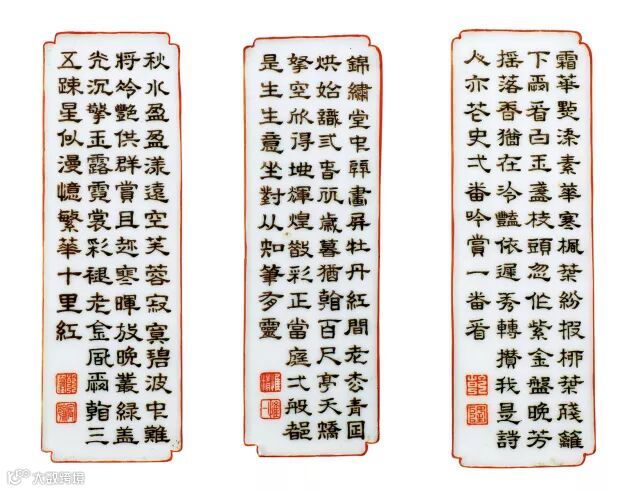 霜華點漆素華寒楓葉紛披柳葉殘籬
下看白玉盞枝頭忽作紫金盤晚芳
搖落香猶在冷豔依遲秀轉攢我是詩
人亦花史弌番吟賞一番看
乾隆
錦繡堂中畫屏牡丹紅間老松青
烘始識弎春歲暮猶百尺亭夭矯
拏空欣得地輝煌散彩正當庭弌般都
是生生意坐對从知筆有靈
惟精
惟一
秋水盈盈漾遠空芙蓉寂寞碧波中難
將冷艷供群賞且趁寒暉放晚叢綠蓋
光沉擎玉露霓裳彩褪老金風三
五疎星似漫憶繁華十里紅
大数跨境